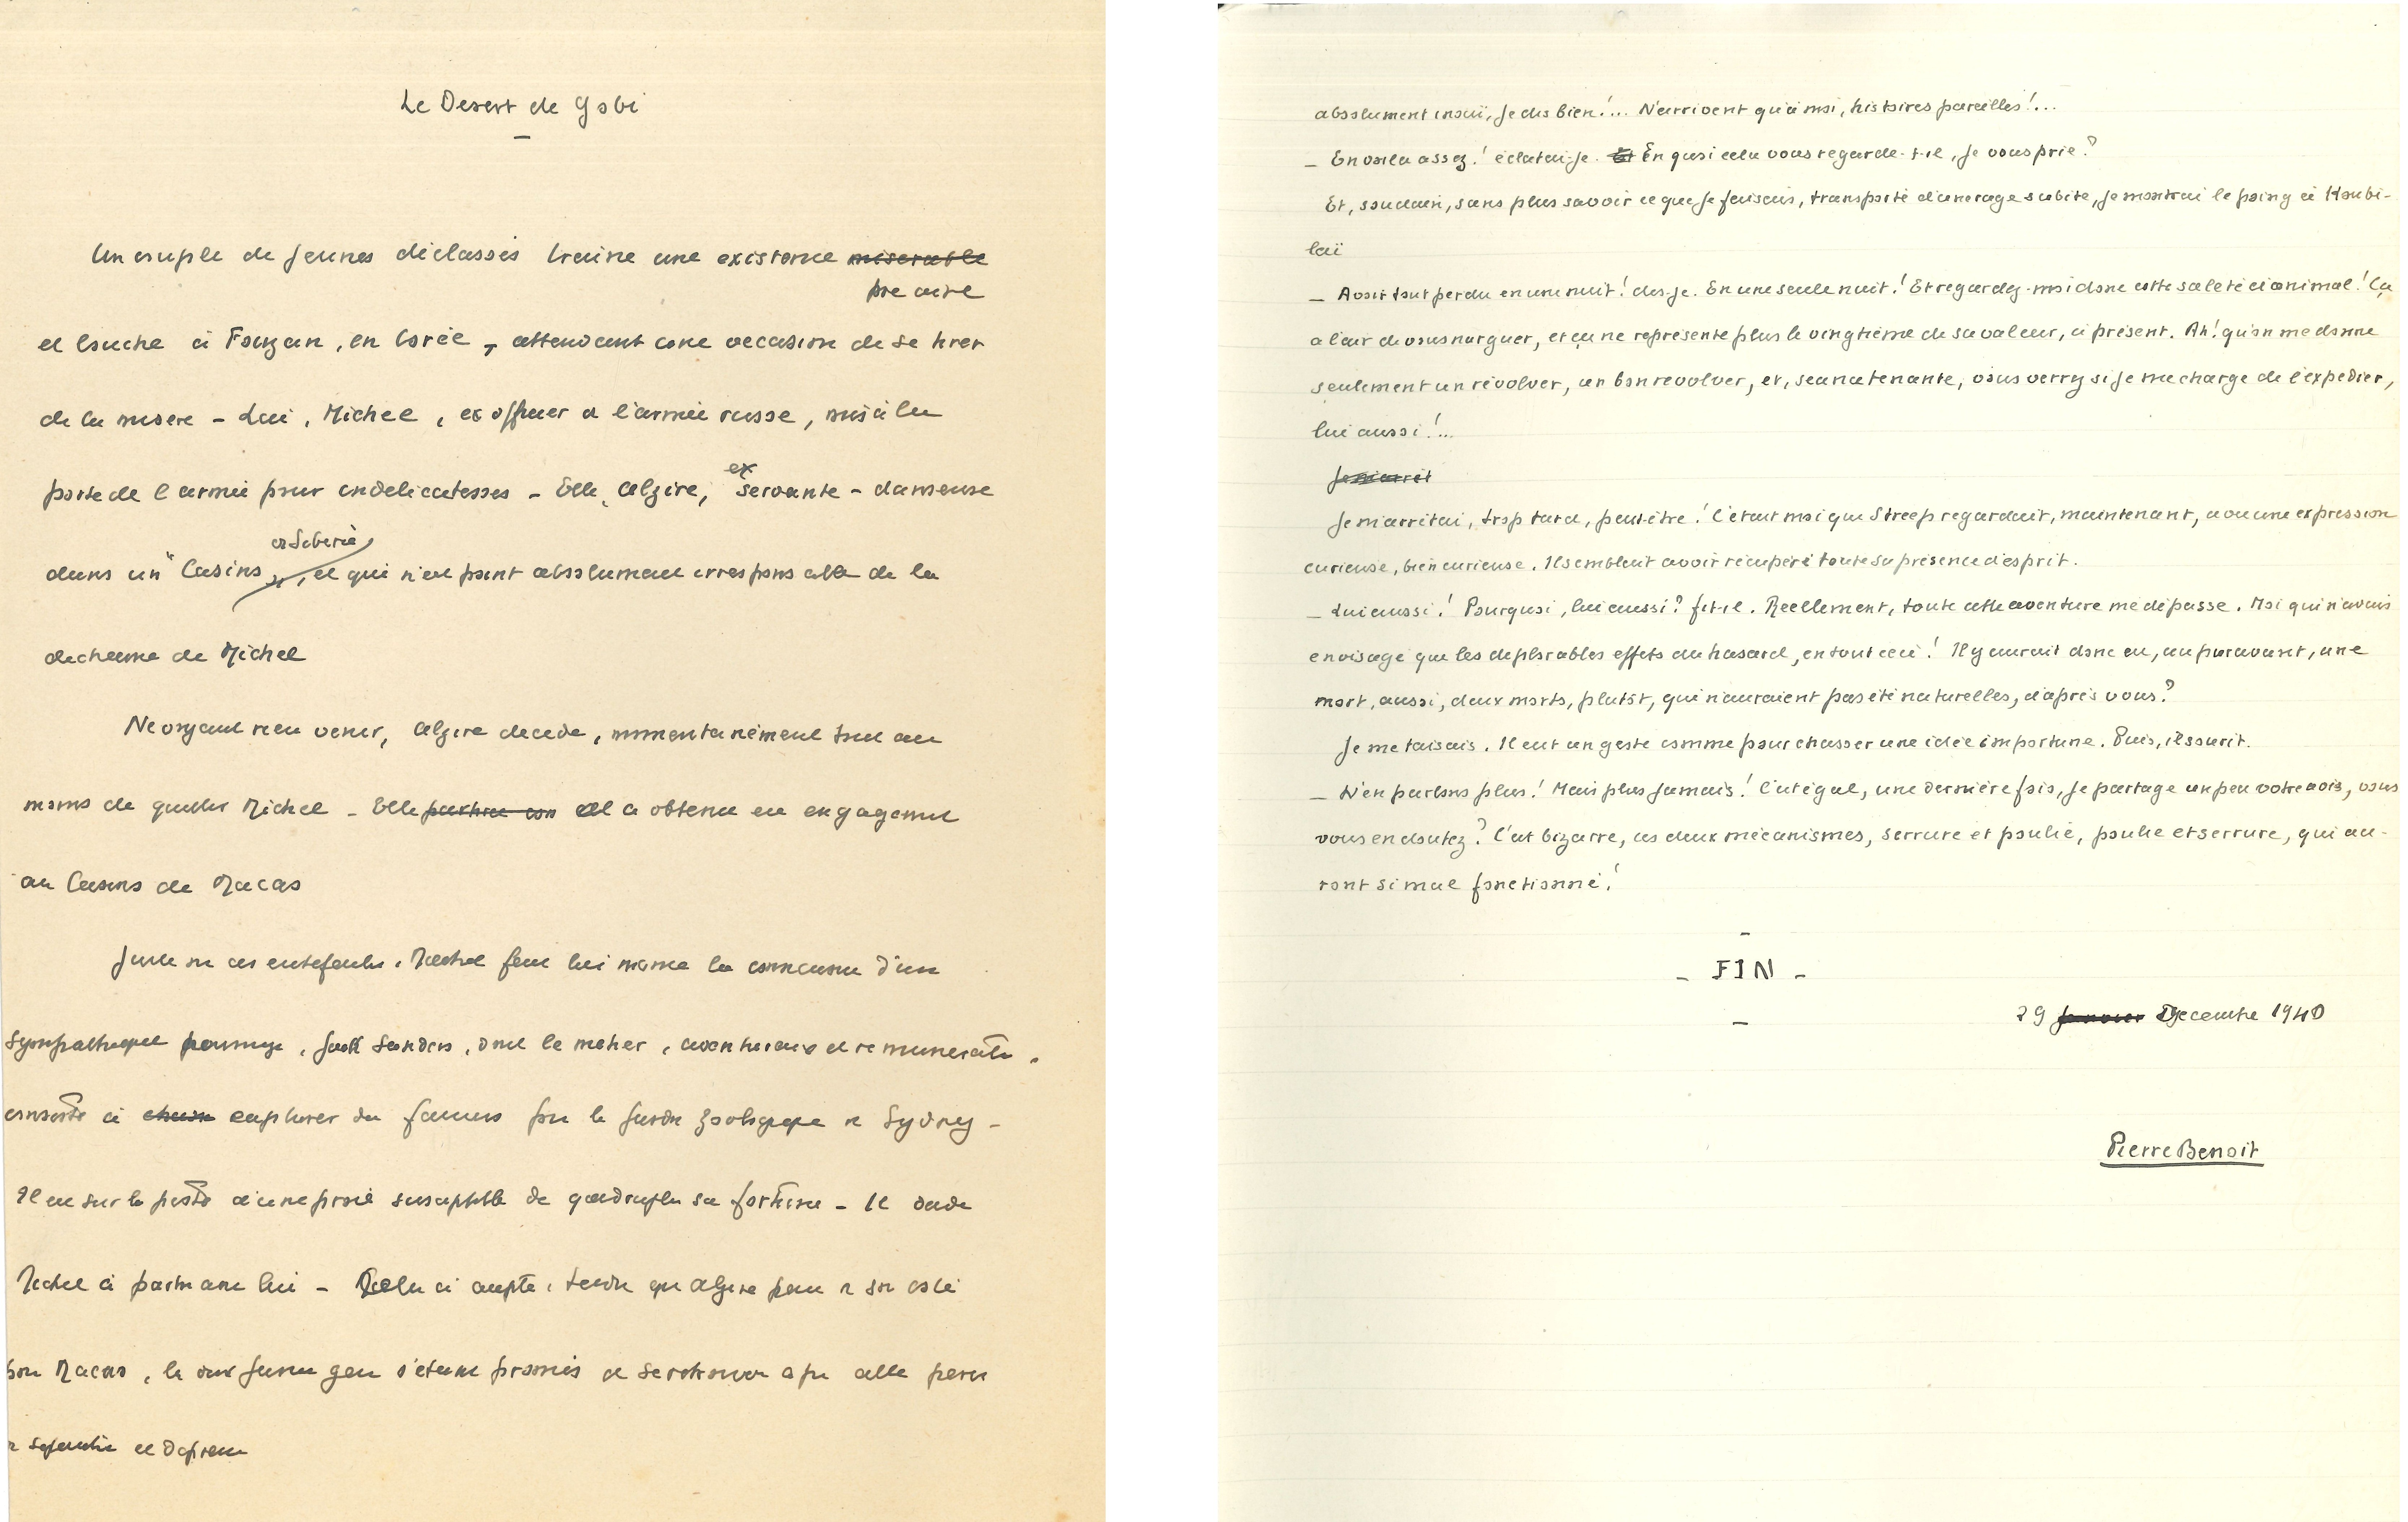 Le Desert de Gobi
Un couple de jeunes déclassés traine une existence miserable
precaire
et louche à Fouzan, en Corée, attendant une occasion de se tirer
de la misere - Lui, Michel, ex officier de l'armée russe, mis à la
porte de l armée pour indelicatesses - Elle, Alzire, ex servante - danseuse
en Siberie
dans un "Casino", et qui n'est point absolument irresponsable de la
decheance de Michel
Ne voyant rien venir, Alzire decide, momentanément tout au
moins de quitter Michel - Elle a obtenu un engagement
au Casino de Macao
Sur ces entrefaites, Michel fait lui meme la connaissance d'un
sympathique personnage, Sanders, dont le metier, aventureux et remunerateur,
consiste à capturer des fauves pour le jardin zoologique de Sydney -
Il est sur la piste d'une proie susceptible de quadrupler sa fortune - Il decide
Michel à partir avec lui - Celui ci accepte, tandis que Alzire part de son coté
pour Macao, les deux jeunes gens s'étant promis de se retrouver apres cette periode
de
absolument inouï, je dis bien!... N'arrivent qu'à moi, histoires pareilles!...
_ En voilà assez! éclatai-je. En quoi cela vous regarde-t-il, je vous prie?
Et, soudain, sans plus savoir ce que je faisais, transporté d'une rage subite, je montrai le poing à Koubi-
laï
_ Avoir tout perdu en une nuit! dis-je. En une seule nuit! Et regardez-moi donc cette saleté d'animal! Ça
a l'air de vous narguer, et ça ne représente plus le vingtième de sa valeur, à présent. Ah! qu'on me donne
seulement un révolver, un bon revolver, et, séance tenante, vous verrez si je me charge de l'expédier,
lui aussi!...
Je m'arret
Je m'arrêtai, trop tard, peut-être! C'était moi que Streep regardait, maintenant, avec une expression
curieuse, bien curieuse. Il semblait avoir récupéré toute sa présence d'esprit.
_ Lui aussi! Pourquoi, lui aussi? fit-il. Réellement, toute cette aventure me dépasse. Moi qui n'avais
envisagé que les déplorables effets du hasard, en tout ceci! Il y aurait donc eu, auparavant, une
mort, aussi, deux morts, plutôt, qui n'auraient pas été naturelles, d'après vous?
Je me taisais. Il eut un geste comme pour chasser une idée importune. Puis, il sourit.
_ N'en parlons plus! Mais plus jamais! C'est égal, une dernière fois, je partage un peu votre avis, vous
vous en doutez? C'est bizarre, ces deux mécanismes, serrure et poulie, poulie et serrure, qui au-
ront si mal fonctionné!
- FIN -
29 Janvier Decembre 1940
Pierre Benoit